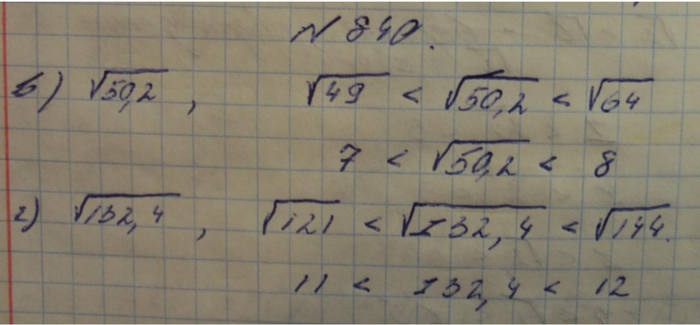 № 840.
в) √50,2 , √49 < √50,2 < √64
7 < √50,2 < 8
г) √132,4 , √121 < √132,4 < √144.
11 < 132,4 < 12